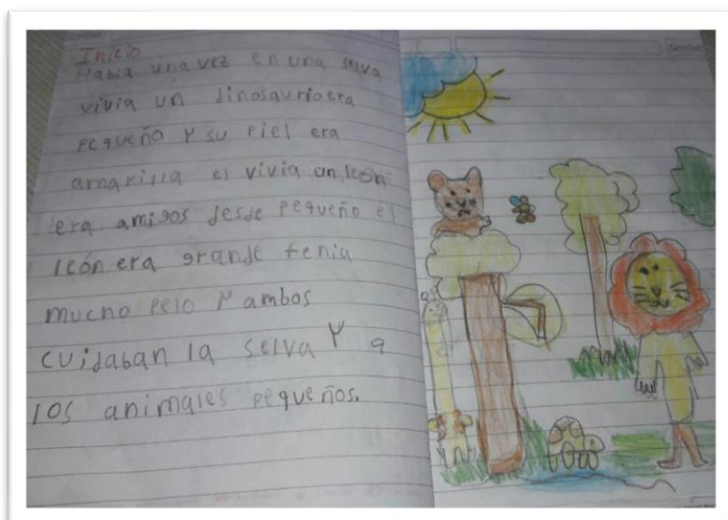 Inicio
Habia una vez en una selva
vivia un dinosaurio era
pequeño y su piel era
amarilla el vivia un león
era amigos desde pequeño el
león era grande tenia
mucho pelo y ambos
cuidaban la selva y a
los animales pequeños.
Scribe